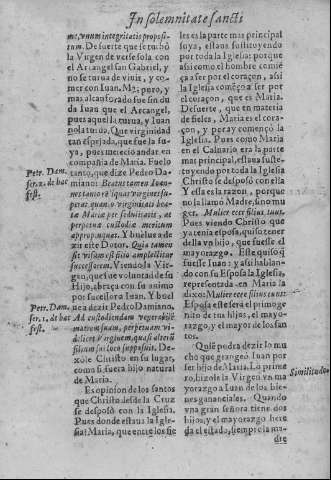 In solemnitate sancti
me, vnum integritatis proposi-
tum. De suerte que se turbò
la Virgen de verse sola con
el Arcangel san Gabriel, y
no se turua de viuir, y co-
mer con Iuan. Mas puro, y
mas alcançado fue sin du
da Iuan que el Arcangel,
pues aquel la turua, y Iuan
no la turua. Que virginidad
tan esprjada, que fue la su-
ya, pues merecio andar en
compañia de Maria. Fue lo
tanto, que dize Pedro Da-
miano:
perpetua custodiæ meritum
appropinquat. Y buelue a de
zir este Dotor. Quia tamen
est visum est filio
successorem. Viendo la Vir-
gen, que se voluntad de su
Hijo, abraça con su animo
por sucessora Iuan. Y buel
ue a dezir Pedro Damiano.
Ad custodiendam
matronsuam, perpetuam vi-
delicet Virginem, quasi alterũ
filium suo loco supposuit. De-
xole Christo en su lugar,
como si fuera hijo natural
de Maria.
Es opinion de los santos
que Christo desde la Cruz
se desposò con la Iglesia.
Pues donde estaua la Igle-
sia? Maria, que entre los fie
Petr. Dam.
ser. 1. de hac
fest.
Petr. Dam.
ser. 1. de hac
fest.
les es la parte mas principal
suya, estaua sustituyendo
por toda la Iglesia: porque
assi como el hombre comiẽ
ça a ser por el coraçon, assi
la Iglesia comẽço a ser por
el coraçon, que es Maria.
De suerte, que en materia
de fieles, Maria es el cora-
çon, y por ay començò la
Iglesia. Pues como Maria
en el Caluario era la parte
mas principal, estaua suste-
tuyendo por toda la Iglesia
Christo se desposò con ella
Y essa es la razon, porque
no la llamò Madre, sino mu
ger. Mulier ecce filius tuus.
Pues viendo Christo que
ya tenia esposa, quiso tener
della vn hijo, que fuesse el
mayorazgo. Este quiso q̃
fuesse Iuan: y assi hablan-
do con su Esposa la Iglesia,
representada en Maria la
dixo: Mulier ecce filius tuus
Esposa este sera el primoge
nito de tus hijos, el mayo-
razgo, y el mayor de los san
tos.
Quiẽ podra dezir lo mu
cho que grangeò Iuan por
ser hijo de Maria. Lo prime
ro, hizole la Virgen vn ma
yorazgo a Iuan de los bie-
nes gananciales. Quando
vna gran señora tiene dos
hijos, y el mayorazgo here
da el estado, siempre la ma
dre
Similitudo.